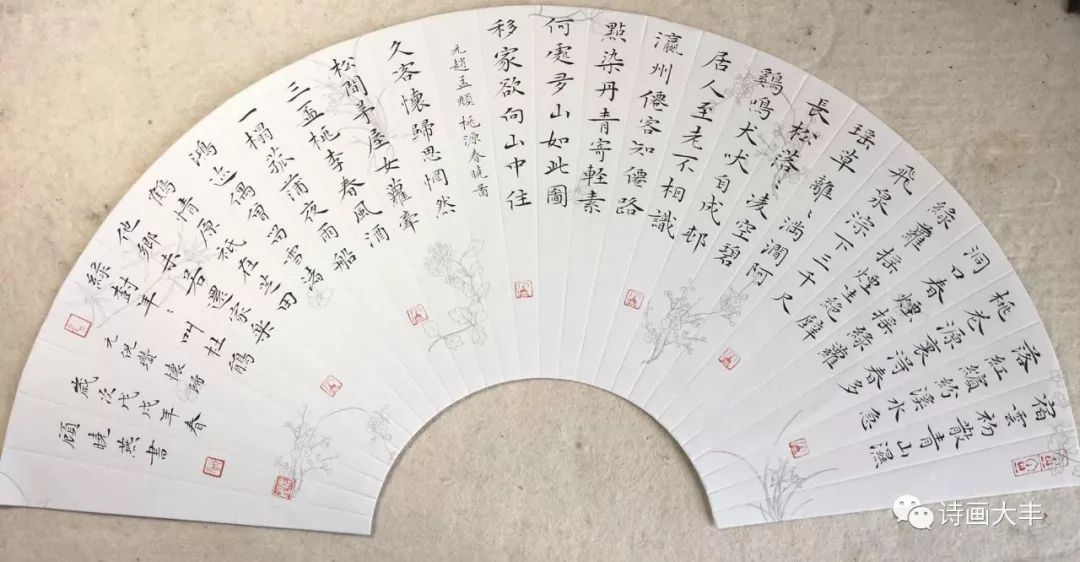 宿雲初散青山濕
落紅繽紛溪水急
桃花源裏淂春多
洞口春煙搖綠蘿
綠蘿搖煙生絶壁
飛泉淙下三千尺
瑤草離〻滿澗阿
長松落〻凌空碧
鷄鳴犬吠自成邨
居人至老不相識
瀛州僊客知僊路
點染丹青寄輕素
何處多山如此圖
移家欲向山中住
元趙孟頫桃源春曉圖
久客懷歸思惘然
松間茅屋女蘿牽
三盃桃李春風酒
一榻菰蒲夜雨船
鴻迹偶曾留雪渚
鶴情原秪在芝田
他鄉未若還家樂
綠樹年〻叫杜鵑
元倪瓚懷歸
歲次戊戌年春
顧曉燕書
诗画大丰